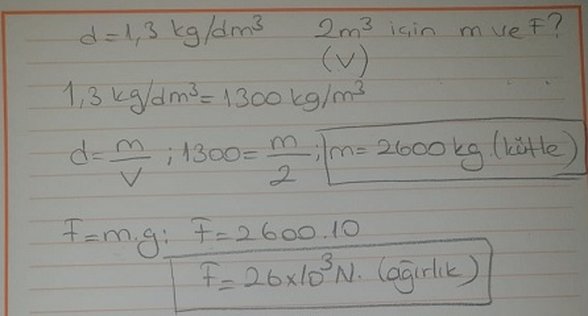 d=1,3 kg/dm³ 2m³ için m ve F?
(V)
1,3 kg/dm³=1300 kg/m³
d=m/V ; 1300=m/2 ; m=2600kg.(kütle)
F=m.g; F=2600.10
F=26x10³N. (ağırlık)